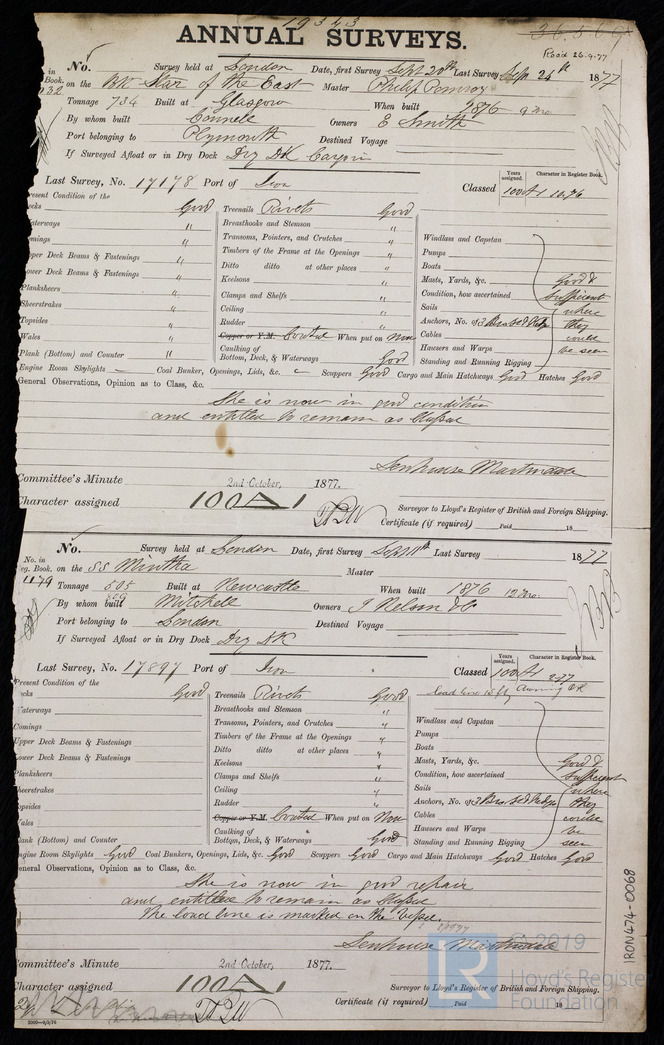 19343
36.509
ANNUAL SURVEYS.
Read 26.9.77
No. Survey held at London Date, first Survey Sept 20th Last Survey Sept 26th 1877
in Book. on the Bk Star of the East Master Philip Pomroy
Tonnage 734 Built at Glasgow When built 1876 9 Mo.
By whom built Connell Owners E Smith
Port belonging to Plymouth Destined Voyage
If Surveyed Afloat or in Dry Dock Dry DK
Last Survey, No. 17178 Port of Lon Classed
Years assigned. Character in Register Book.
100A1 10.76
resent Condition of the
ecks Good
aterways "
omings "
pper Deck Beams & Fastenings "
ower Deck Beams & Fastenings "
Planksheers "
Sheerstrakes "
Topsides "
Wales "
Plank (Bottom) and Counter "
Treenails Rivets Good
Breasthooks and Stemson "
Transoms, Pointers, and Crutches "
Timbers of the Frame at the Openings "
Ditto ditto at other places "
Keelsons "
Clamps and Shelfs "
Ceiling "
Rudder "
Copper or Y.M. Coated When put on Now
Caulking of Bottom, Deck, & Waterways Good
Windlass and Capstan
Pumps
Boats
Masts, Yards, &c.
Condition, how ascertained
Sails
Anchors, No. of 3
Cables
Hawsers and Warps
Standing and Running Rigging
Good &
Sufficient
where
they
could
be seen
Engine Room Skylights — Coal Bunkers, Openings, Lids, &c. — Scuppers Good Cargo and Main Hatchways Good Hatches Good
General Observations, Opinion as to Class, &c.
She is now in good condition
and entitled to remain as Classed
Senhouse Martindale
Committee's Minute 2nd October, 1877.
Character assigned 100A1
Surveyor to Lloyd's Register of British and Foreign Shipping.
Certificate (if required) Paid 18
No. Survey held at London Date, first Survey Sept 11th Last Survey 1877
No. in
eg. Book. on the SS Mintha Master
479 Tonnage 505 Built at Newcastle When built 1876 12 Mo.
809
By whom built Mitchell Owners J Nelson & Co
Port belonging to London Destined Voyage
If Surveyed Afloat or in Dry Dock Dry DK
Last Survey, No. 17897 Port of Lon Classed
Years assigned. Character in Register Book.
100A1 2.77
Load line
Awning DK
Present Condition of the
ecks Good
Waterways
Comings
Upper Deck Beams & Fastenings
Lower Deck Beams & Fastenings
Planksheers
heerstrakes
opsides
ales
lank (Bottom) and Counter
Treenails Rivets Good
Breasthooks and Stemson "
Transoms, Pointers, and Crutches "
Timbers of the Frame at the Openings "
Ditto ditto at other places "
Keelsons "
Clamps and Shelfs "
Ceiling "
Rudder "
Copper or Y.M. Coated When put on Now
Caulking of Bottom, Deck, & Waterways Good
Windlass and Capstan
Pumps
Boats
Masts, Yards, &c.
Condition, how ascertained
Sails
Anchors, No. of 3
Cables
Hawsers and Warps
Standing and Running Rigging
Good &
Sufficient
where
they
could
be
seen
ngine Room Skylights Good Coal Bunkers, Openings, Lids, &c. Good Scuppers Good Cargo and Main Hatchways Good Hatches Good
eneral Observations, Opinion as to Class, &c.
She is now in good repair
and entitled to remain as Classed
The load line is marked on the Vessel.
Senhouse Martindale
ommittee's Minute 2nd October, 1877.
haracter assigned 100A1
Surveyor to Lloyd's Register of British and Foreign Shipping.
Certificate (if required) Paid 18
IRON474-0068
© 2019
LR
Lloyd's Register
Foundation